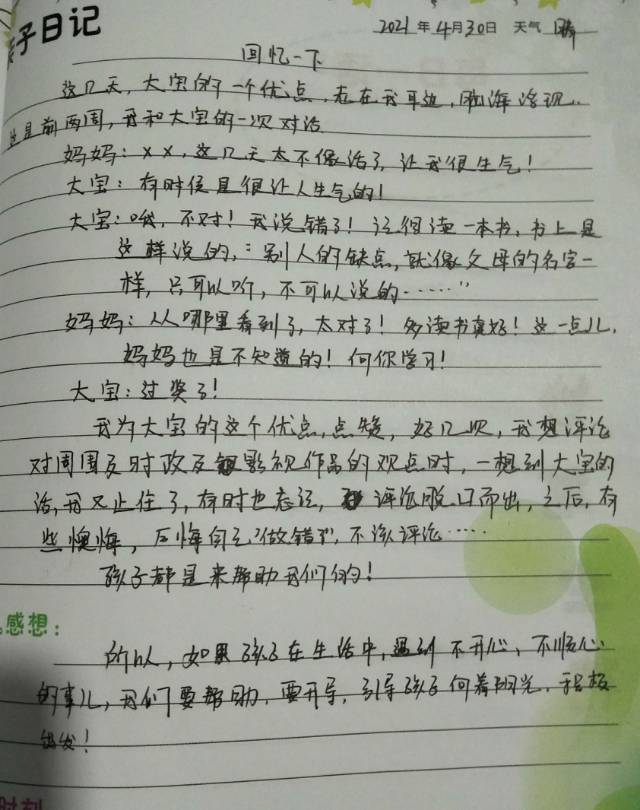 子日记
2021年4月30日 天气 晴
回忆一下
这几天,大宝的一个优点,老在我耳边,脑海浮现..
这是前两周,我和大宝的一次对话
妈妈:××,这几天太不像话了,让我很生气!
大宝:有时候是很让人生气的!
大宝:哦,不对!我说错了!记得读一本书,书上是
这样说的,:别人的缺点,就像父母的名字一
样,只可以听,不可以说的……"
妈妈:从哪里看到了,太对了!多读书真好!这一点儿,
妈妈也是不知道的!向你学习!
大宝:过奖了!
我为大宝的这个优点,点赞,好几次,我想评论
对周围及时政及影视作品的观点时,一想到大宝的
话,我又止住了,有时也忘记,评论脱口而出,之后,有
些懊悔,后悔自己"做错了",不该评论……
孩子都是来帮助我们的!
感想:
所以,如果孩子在生活中,遇到不开心,不顺心
的事儿,我们要帮助,要开导,引导孩子向着阳光,积极
出发!
时刻